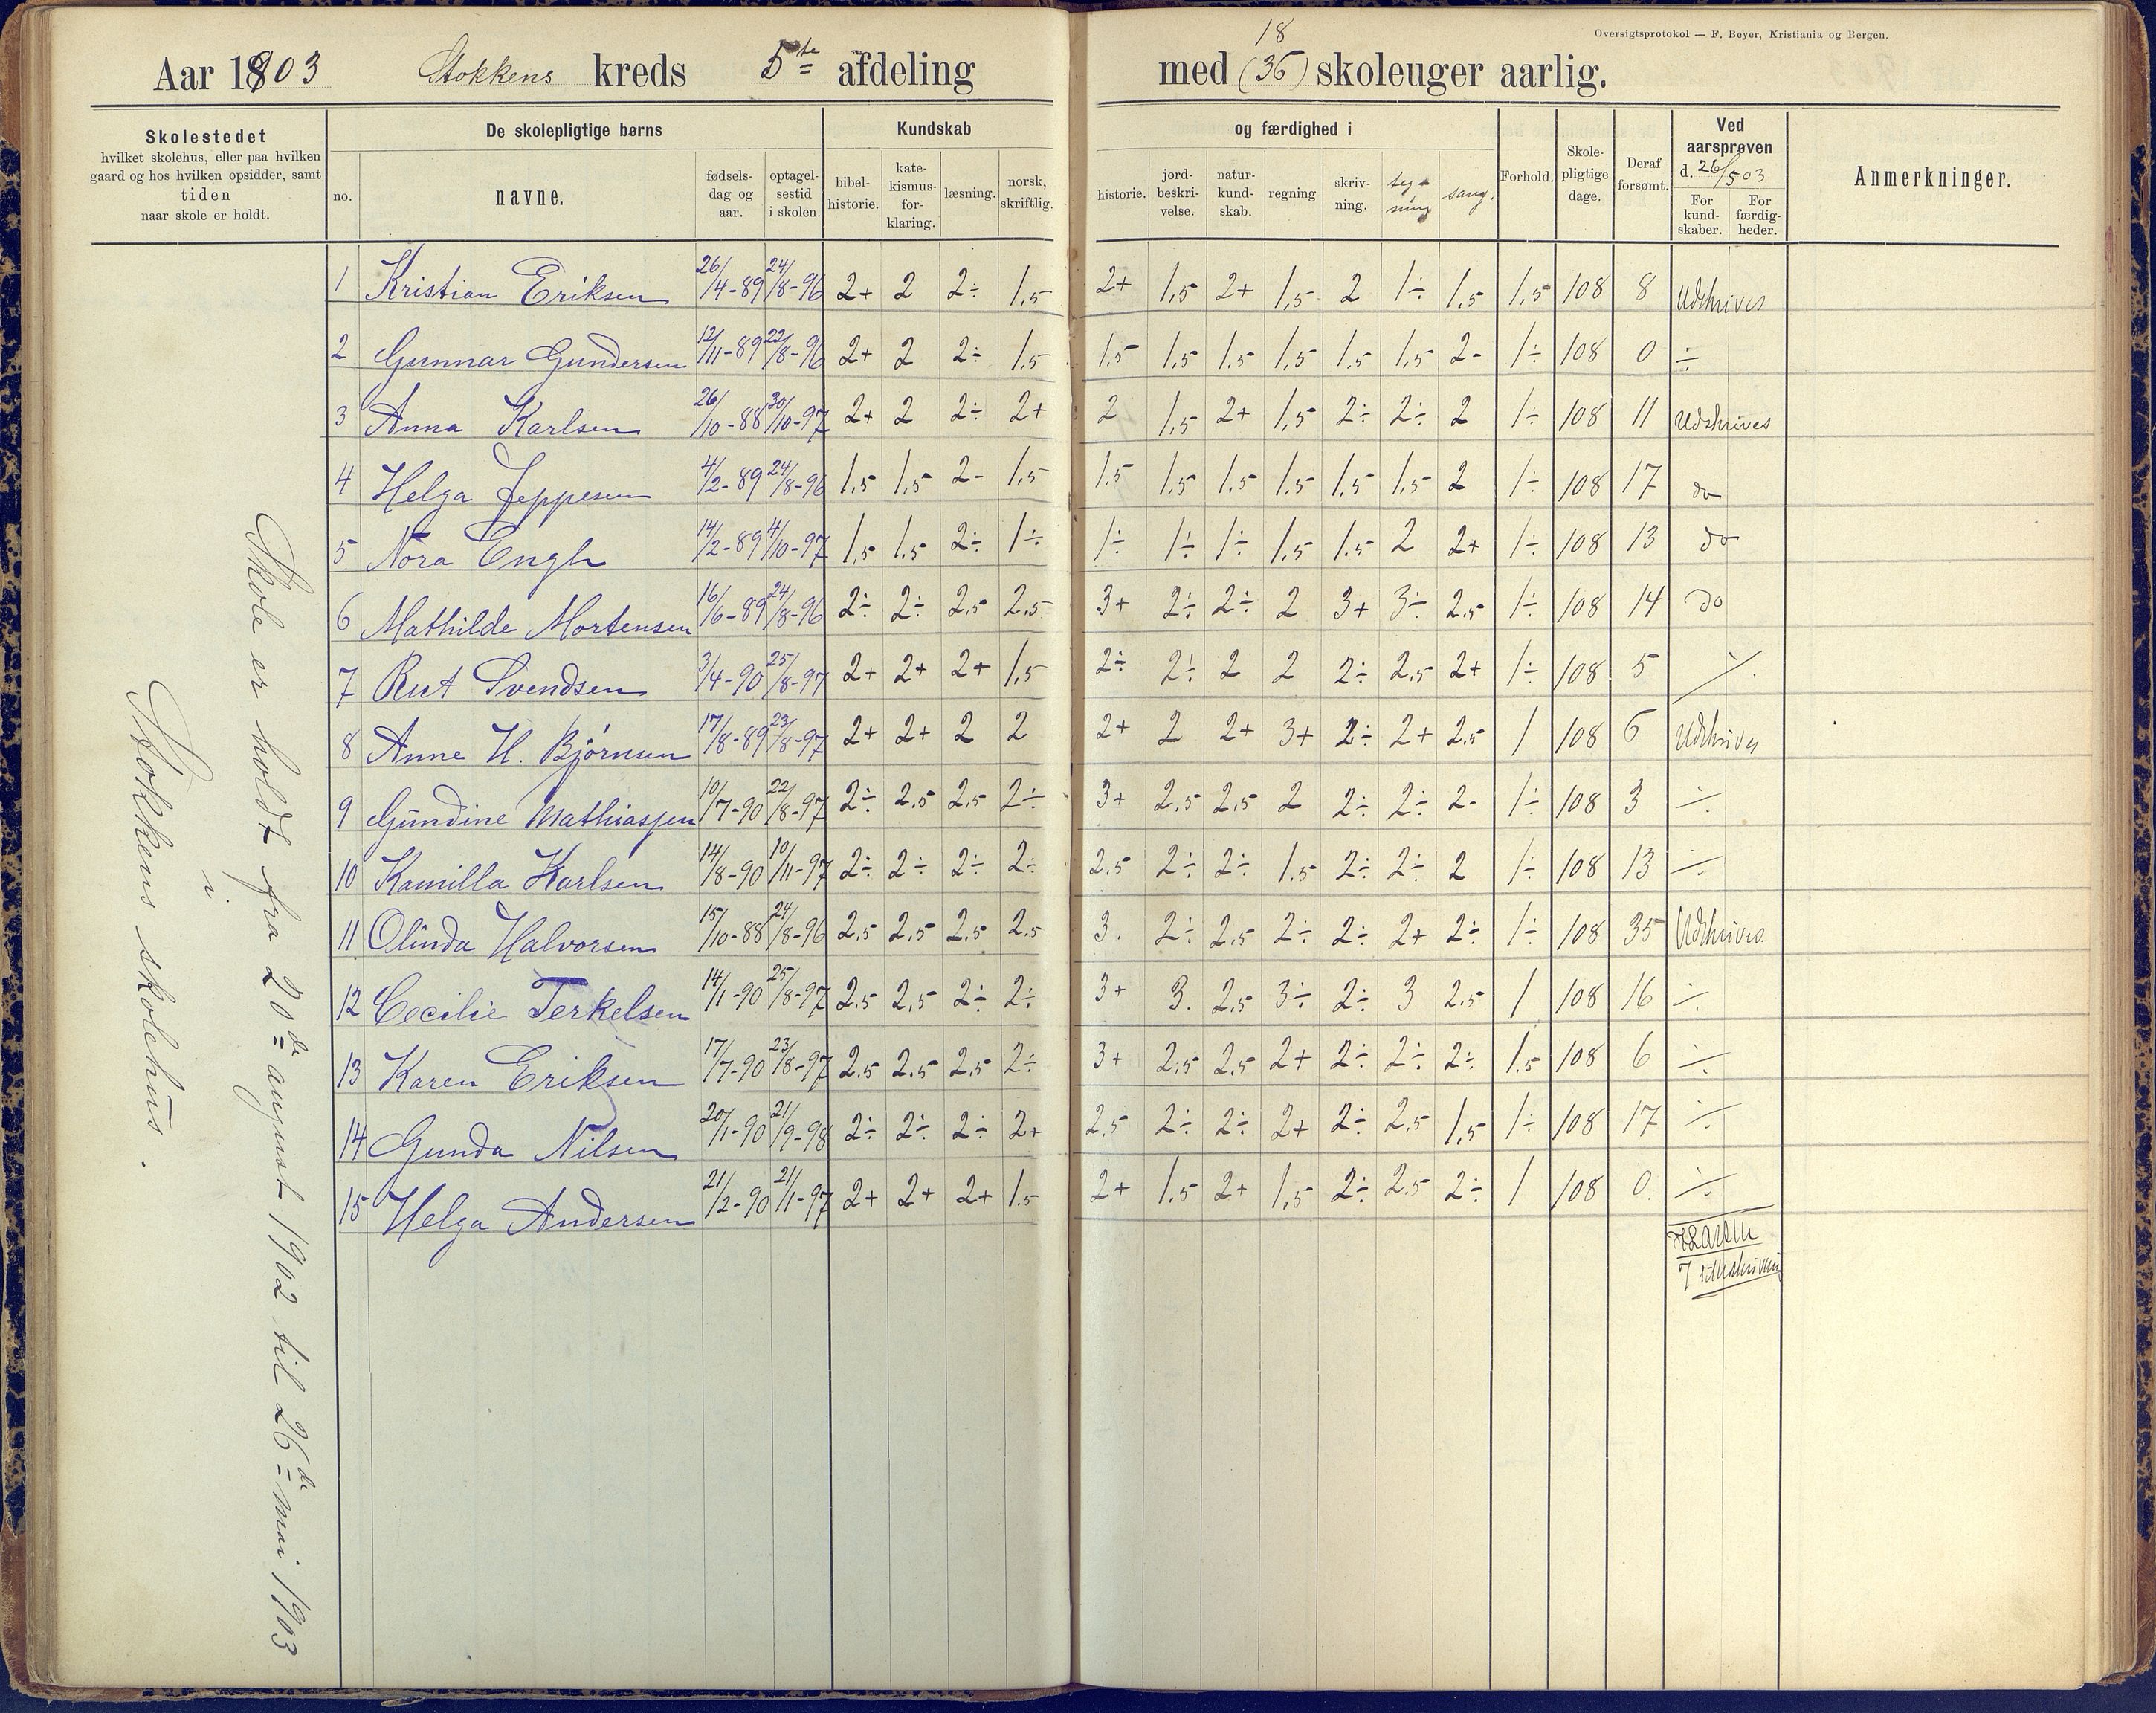 18
Oversigtsprotokol — F. Beyer, Kristiania og Bergen.
Aar 1903 Stokkens kreds 5te afdeling med (36) skoleuger aarlig.
Skolestedet
hvilket skolehus, eller paa hvilken
gaard og hos hvilken opsidder, samt
tiden
naar skole er holdt.
De skolepligtige børns
no. navne. fødsels-dag og aar. optagel-sestid i skolen.
Kundskab og færdighed i
bibel-historie. kate-kismus-for-klaring. læsning. norsk, skriftlig. historie. jord-beskri-velse. natur-kund-skab. regning skriv-ning. teg-ning sang.
Forhold. Skole-pligtige dage. Deraf forsømt.
Ved aarsprøven d. 26/5 03
For kund-skaber. For færdig-heder.
Anmerkninger.
Skole er holdt fra 20de august 1902 til 26de mai 1903
i
Stokkens skolehus.
1 Kristian Eriksen 26/4-89 24/8-96 2+ 2 2÷ 1,5 2+ 1,5 2+ 1,5 2 1÷ 1,5 1,5 108 8 Udskrives
2 Gunnar Gundersen 12/11-89 22/8-96 2+ 2 2÷ 1,5 1.5 1,5 1,5 1,5 1,5 1,5 2- 1÷ 108 0 ÷
3 Anna Karlsen 26/10-88 30/10-97 2+ 2 2÷ 2+ 2 1,5 2+ 1,5 2÷ 2÷ 2 1÷ 108 11 Udskrives
4 Helga Jeppesen 4/2-89 24/8-96 1,5 1,5 2- 1,5 1.5 1,5 1,5 1,5 1,5 1,5 2 1÷ 108 17 do
5 Nora Engh 14/2-89 4/10-97 1,5 1,5 2÷ 1÷ 1÷ 1÷ 1÷ 1,5 1.5 2 2+ 1÷ 108 13 do
6 Mathilde Mortensen 16/6-89 24/8-96 2÷ 2÷ 2,5 2,5 3+ 2÷ 2÷ 2 3+ 3÷ 2,5 1÷ 108 14 do
7 Rut Svendsen 3/4-90 25/8-97 2+ 2+ 2+ 1,5 2÷ 2÷ 2 2 2÷ 2,5 2+ 1÷ 108 5 ÷
8 Anne H. Bjørnsen 17/8-89 23/8-97 2+ 2+ 2 2 2+ 2 2+ 3+ 2÷ 2+ 2,5 1 108 6 Udskrives
9 Gundine Mathiassen 10/7-90 22/8-97 2÷ 2,5 2,5 2÷ 3+ 2,5 2,5 2 2÷ 2÷ 2- 1÷ 108 3 ÷
10 Kamilla Karlsen 14/8-90 10/11-97 2÷ 2÷ 2÷ 2÷ 2.5 2÷ 2÷ 1.5 2÷ 2÷ 2 1÷ 108 13 ÷
11 Olinda Halvorsen 15/10-88 24/8-96 2,5 2,5 2,5 2,5 3. 2÷ 2,5 2÷ 2÷ 2+ 2÷ 1÷ 108 35 Udskrives
12 Cecilie Terkelsen 14/1-90 25/8-97 2.5 2,5 2÷ 2÷ 3+ 3. 2,5 3÷ 2÷ 3 2.5 1 108 16 ÷
13 Karen Eriksen 17/7-90 23/8-97 2.5 2.5 2,5 2÷ 3+ 2,5 2,5 2+ 2÷ 2÷ 2÷ 1.5 108 6 ÷
14 Gunda Nilsen 20/1-90 21/9-98 2÷ 2÷ 2÷ 2+ 2,5 2÷ 2÷ 2+ 2÷ 2,5 1,5 1÷ 108 17 ÷
15 Helga Andersen 21/2-90 21/1-97 2+ 2+ 2+ 1.5 2+ 1.5 2+ 1,5 2÷ 2.5 2÷ 1 108 0. ÷
7